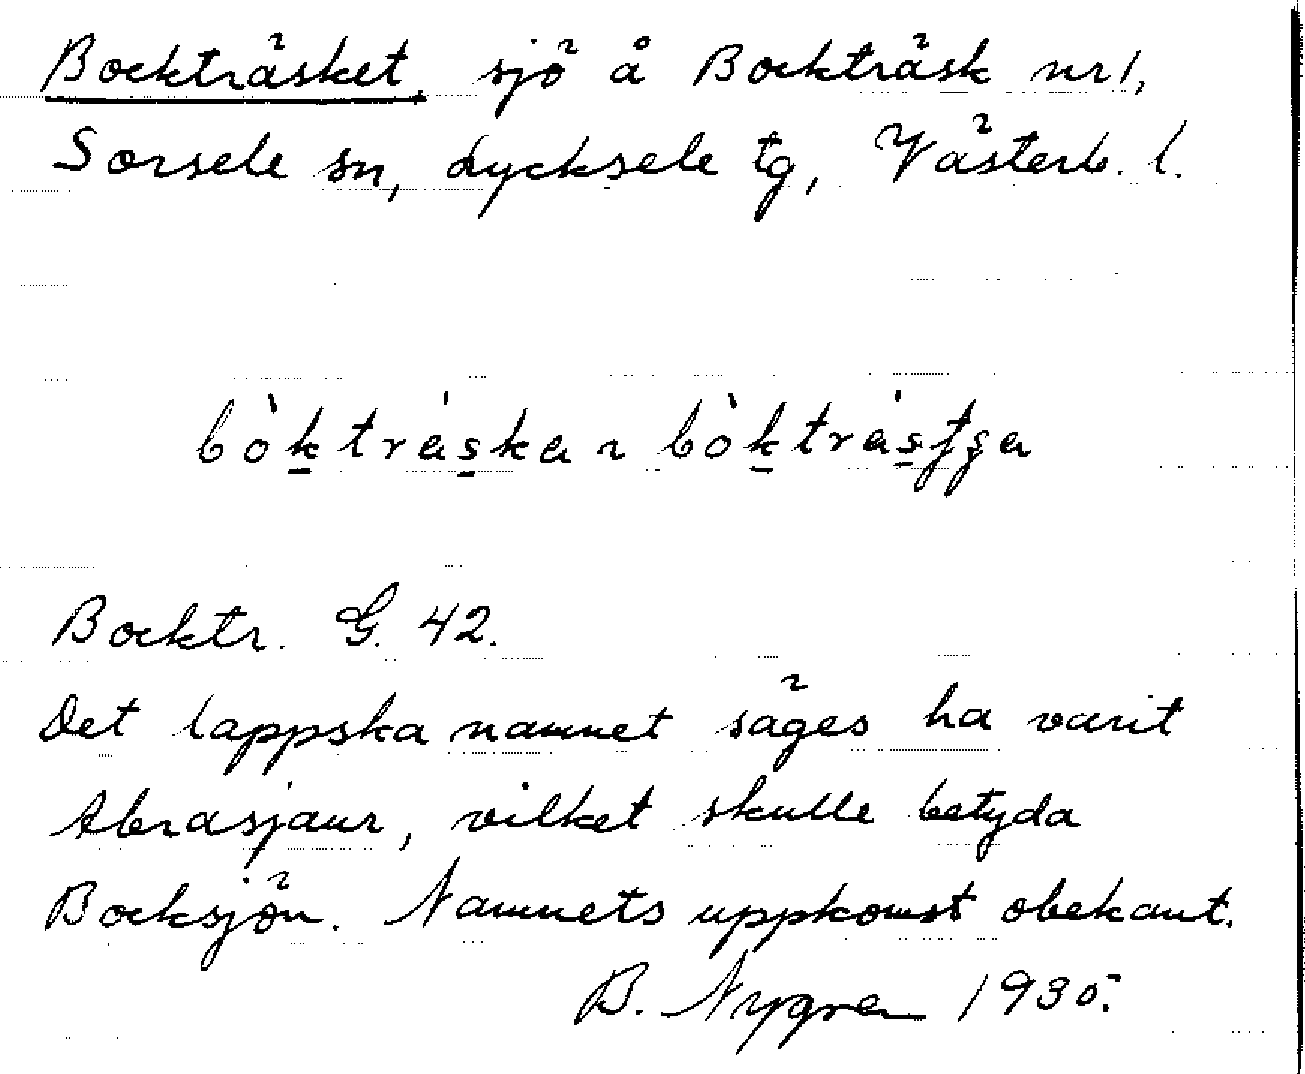 Bockträsket, sjö å Bockträsk nr 1,
Sorsele sn, Lycksele tg, Västerb. l.
Bocktr. G. 42.
Det lappska namnet säges ha varit
Abrasjaur, vilket skulle betyda
Bocksjön. Namnets uppkomst obekant.
B. Nygren 1935.